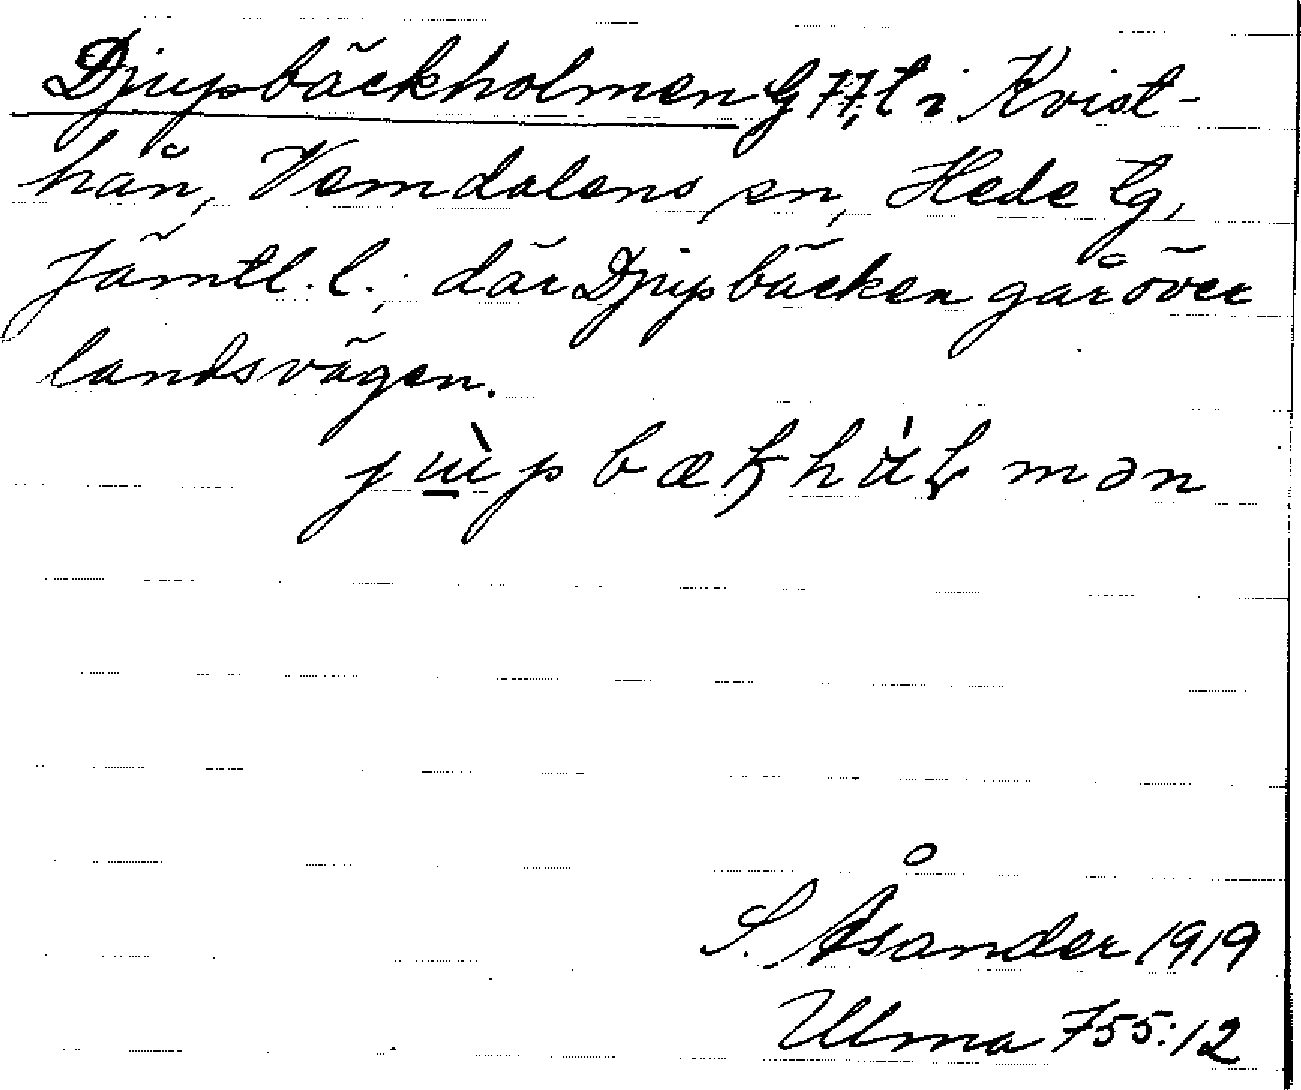 Djupbäckholmen G 77, t i Kvist-
hån, Vemdalens sn, Hede tg,
Jämtl. l.; där Djupbäcken går över
landsvägen.
mən
S. Åsander 1919
Ulma 755:12